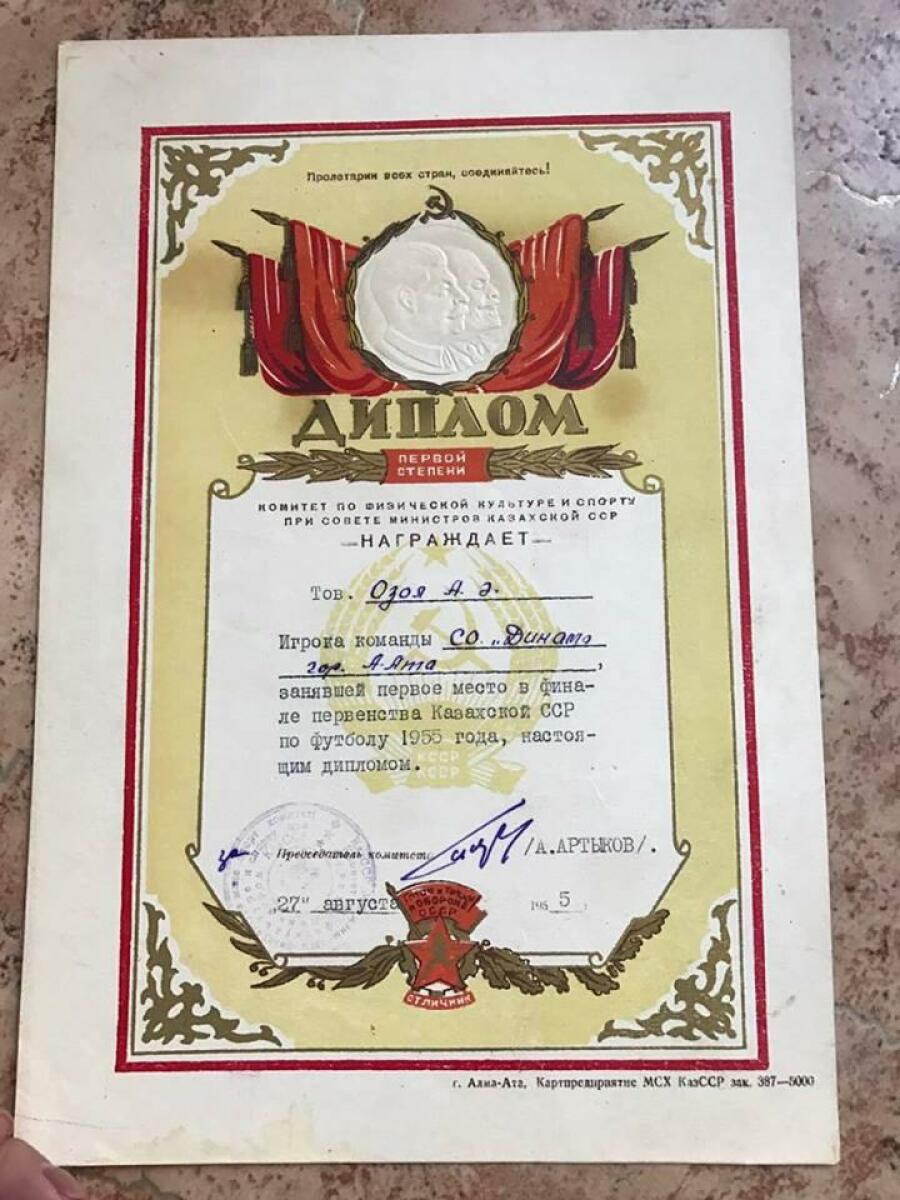 Пролетарии всех стран, соединяйтесь!
ДИПЛОМ
ПЕРВОЙ
СТЕПЕНИ
КОМИТЕТ ПО ФИЗИЧЕСКОЙ КУЛЬТУРЕ И СПОРТУ
ПРИ СОВЕТЕ МИНИСТРОВ КАЗАХСКОЙ ССР
—НАГРАЖДАЕТ—
Тов. Озоя А. Э.
Игрока команды СО „Динамо
гор. А-Ата,
занявшей первое место в фина-
ле первенства Казахской ССР
по футболу 1955 года, настоя-
щим дипломом.
КССР
КССР
за Председатель комитета /А.АРТЫКОВ/.
"27" августа 1955
ГОТОВ К ТРУДУ
И ОБОРОНЕ
СССР
ОТЛИЧНИК
г. Алма-Ата, Картпредприятие МСХ КазССР зак. 387—5000